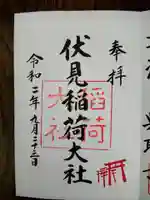 奉拝
伏見稲荷大社
令和二年九月二十三日
稲荷
大社